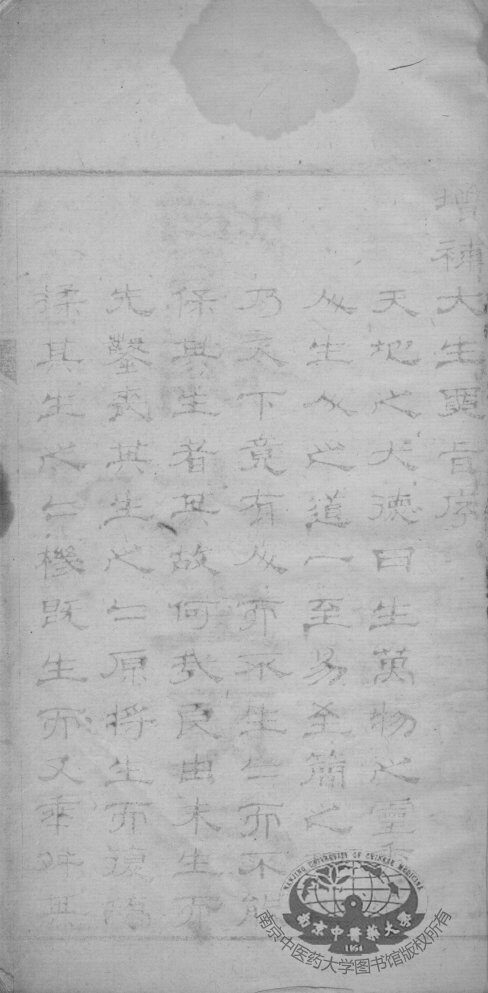 增補大生要旨序
天地之大德曰生萬物之靈
人生人之道一至易至簡之
乃天下竟有人而不生生而不能
保其生者其故何哉良由未生而
先鑿喪其生之仁原將生而復
揉其生之仁機既生而又乖舛其
NANJING UNIVERSITY OF CHINESE MEDICINE
南京中醫藥大學
1954
南京中医药大学图书馆版权所有